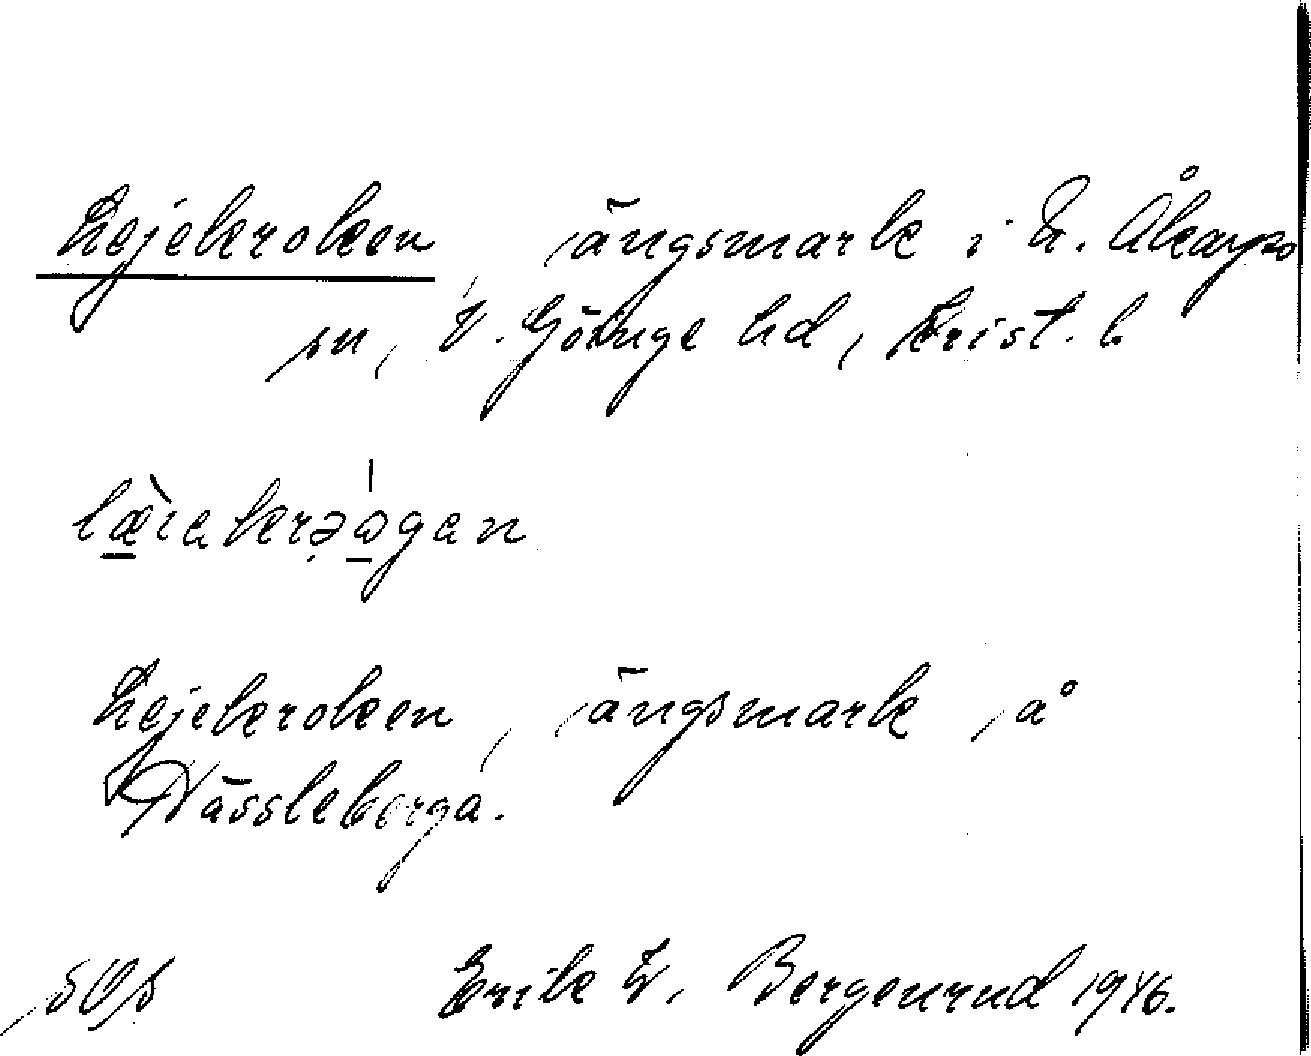 Lejekroken, ängsmark i N. Åkarps
sn, V. Göinge hd, Krist. l.
Lejekroken, ängsmark å
Nässleberga.
Erik W. Bergenrud 1946.